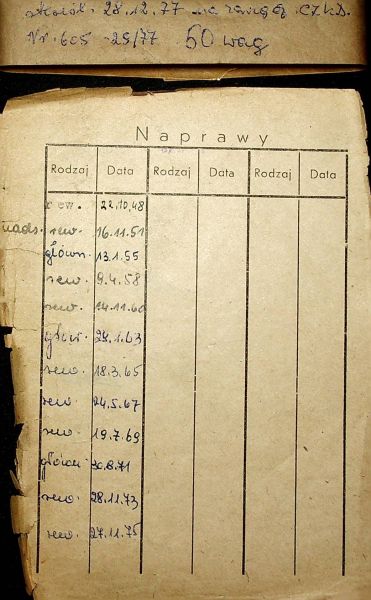 28.12.77 na
Nr. 605 - 25/77 50 wag
Naprawy
Rodzaj Data Rodzaj Data Rodzaj Data
rew. 22.10.48
nads. rew. 16.11.51
główn 13.1.55
rew. 9.4.58
rew. 14.11.60
główn. 24.1.63
rew. 18.3.65
rew. 24.5.67
rew. 19.7.69
główn 30.8.71
rew. 28.11.73
rew. 27.11.75